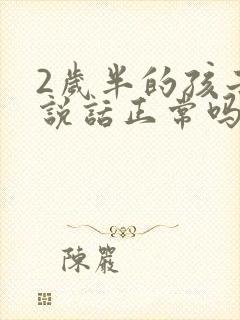 2歲半的孩子
說話正常嗎
陳嚴